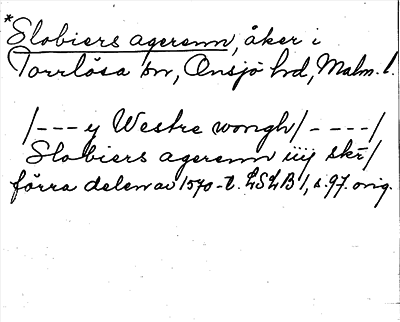 *Slobiers agerenn, åker i
Torrlösa sn, Onsjö hd, Malm. l.
/--- y Westre wongh/ ----/
Slobiers agerenn iiij skr/
förra delen av 1570-t. LSLB 1, s. 97. orig.